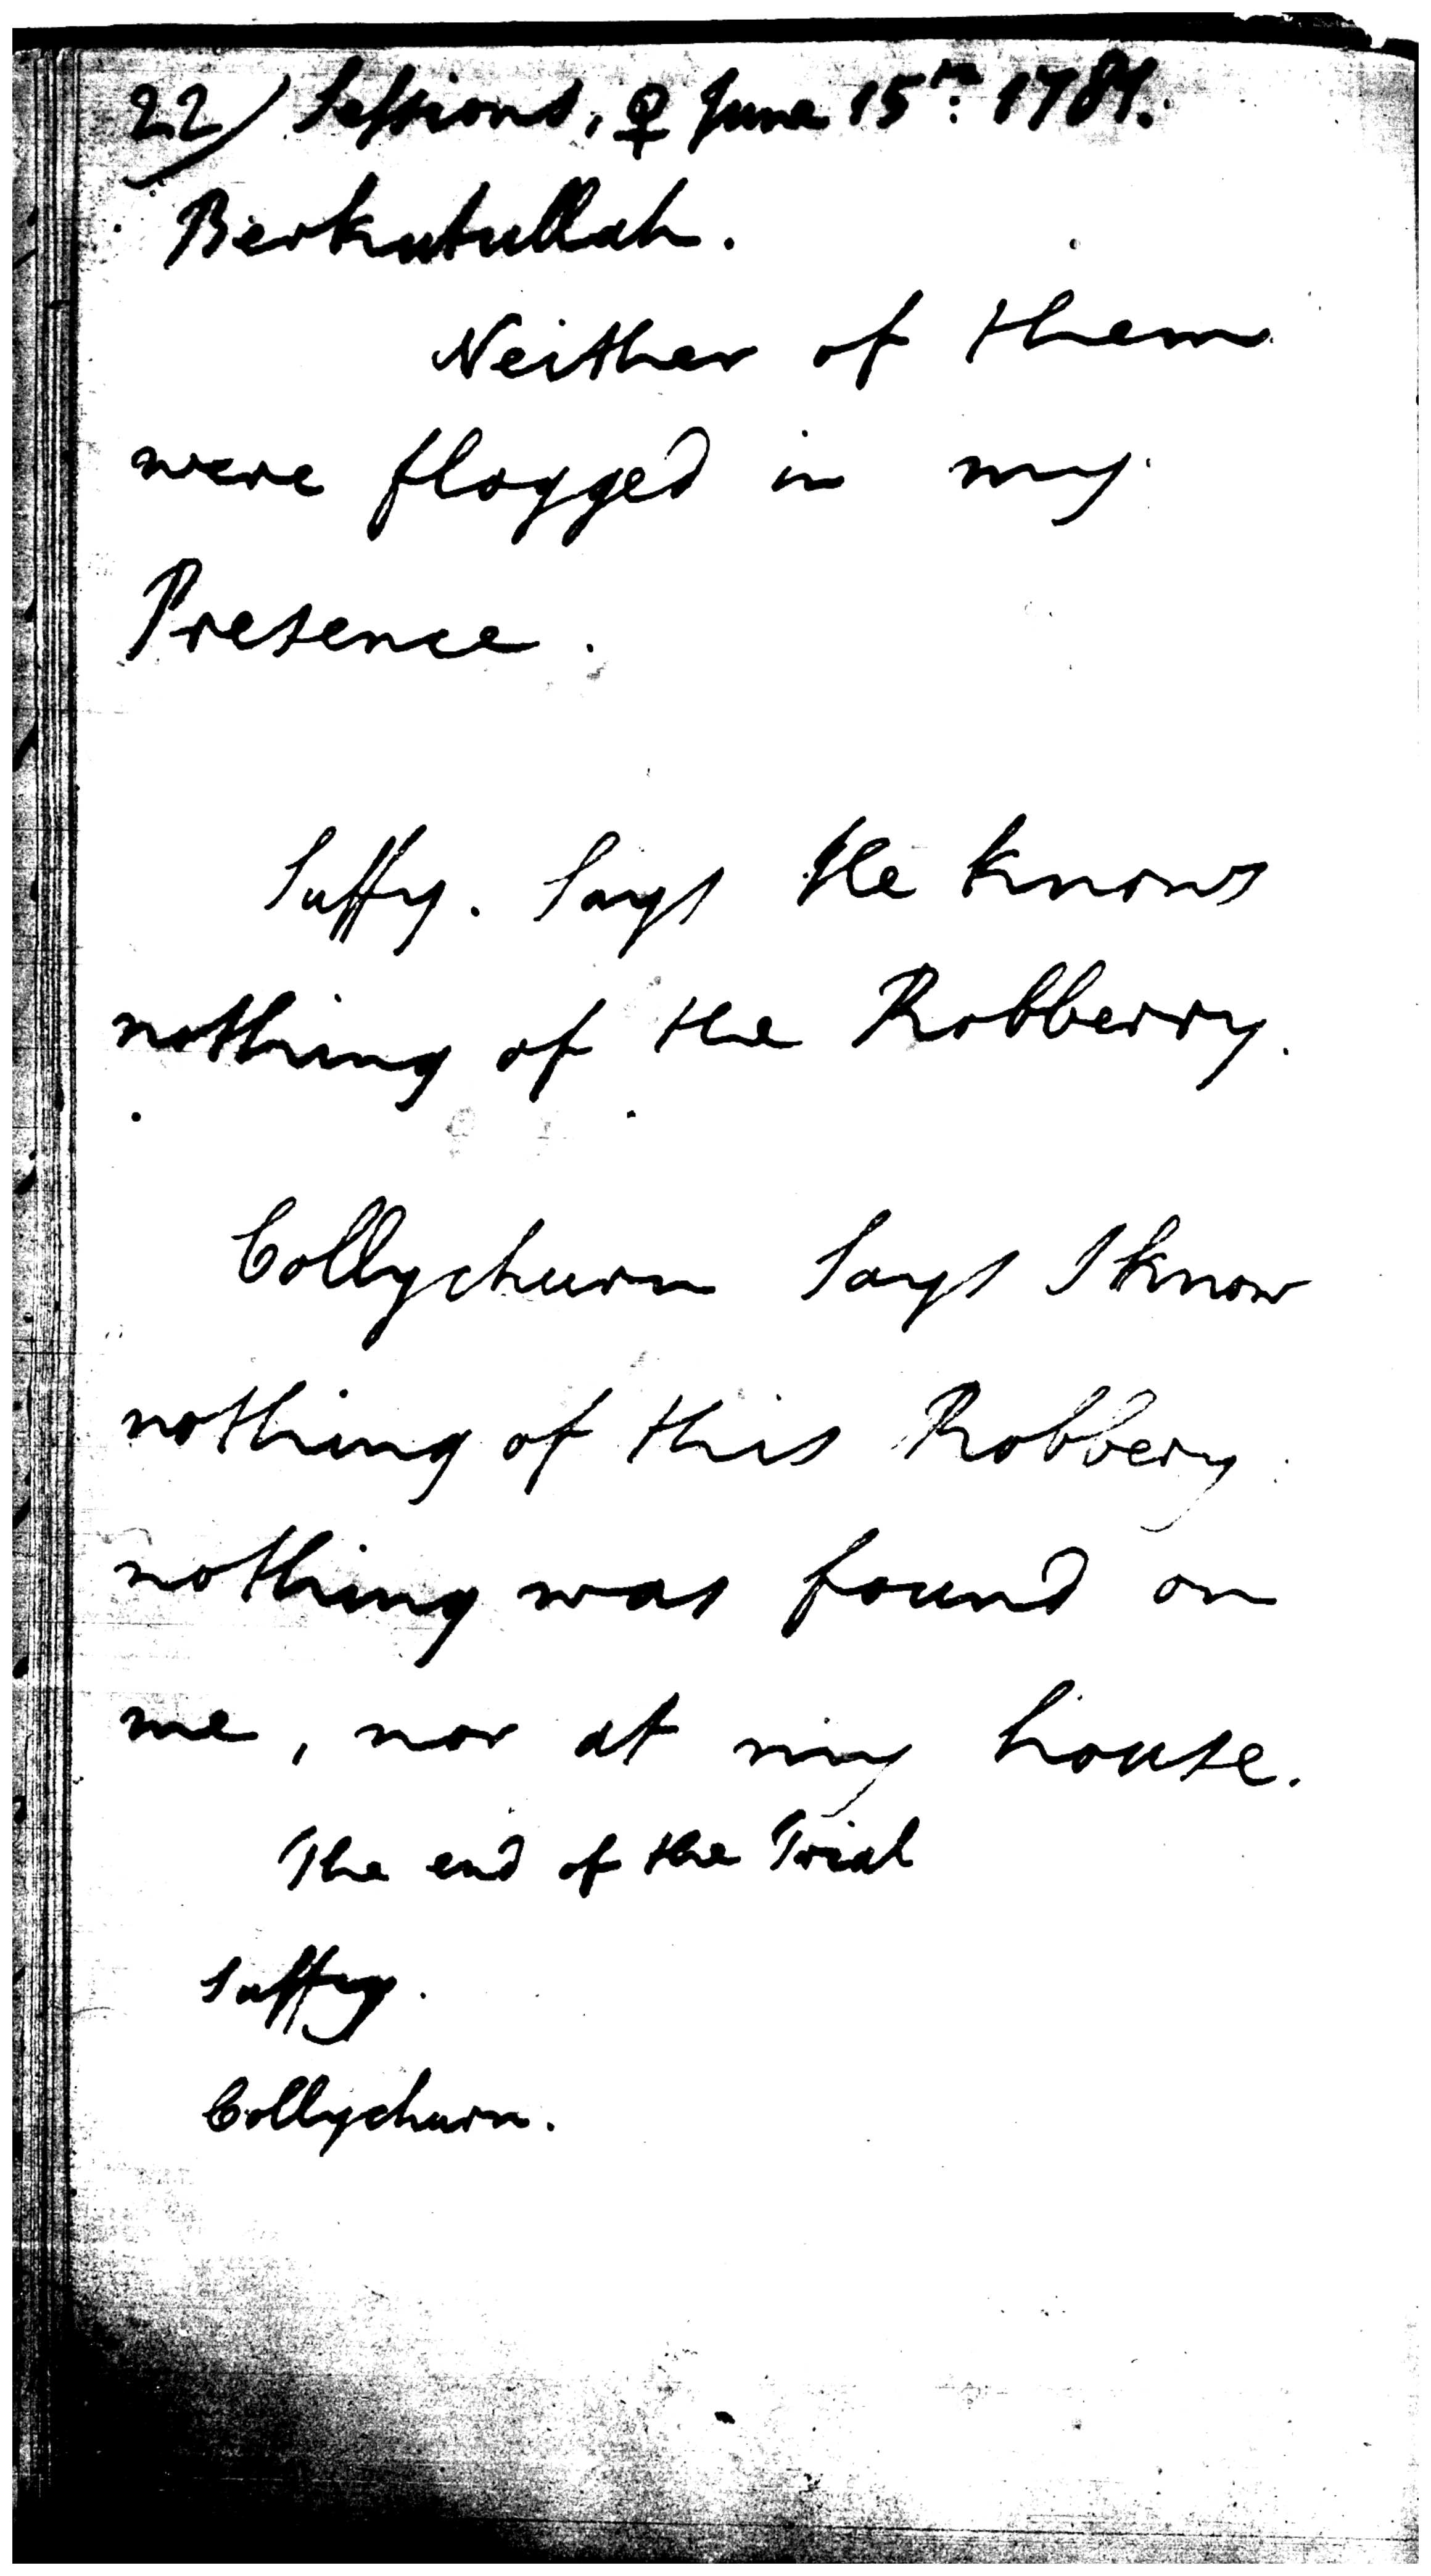 22/ Sessions, ♀ June 15th: 1787.
Berkutullah.
Neither of them
were flogged in my
Presence.
Suffy. Says He knows
nothing of the Robberry.
Collychurn Says I know
nothing of this Robbery.
nothing was found on
me, nor at my house.
The end of the Trial
Suffy.
Collychurn.